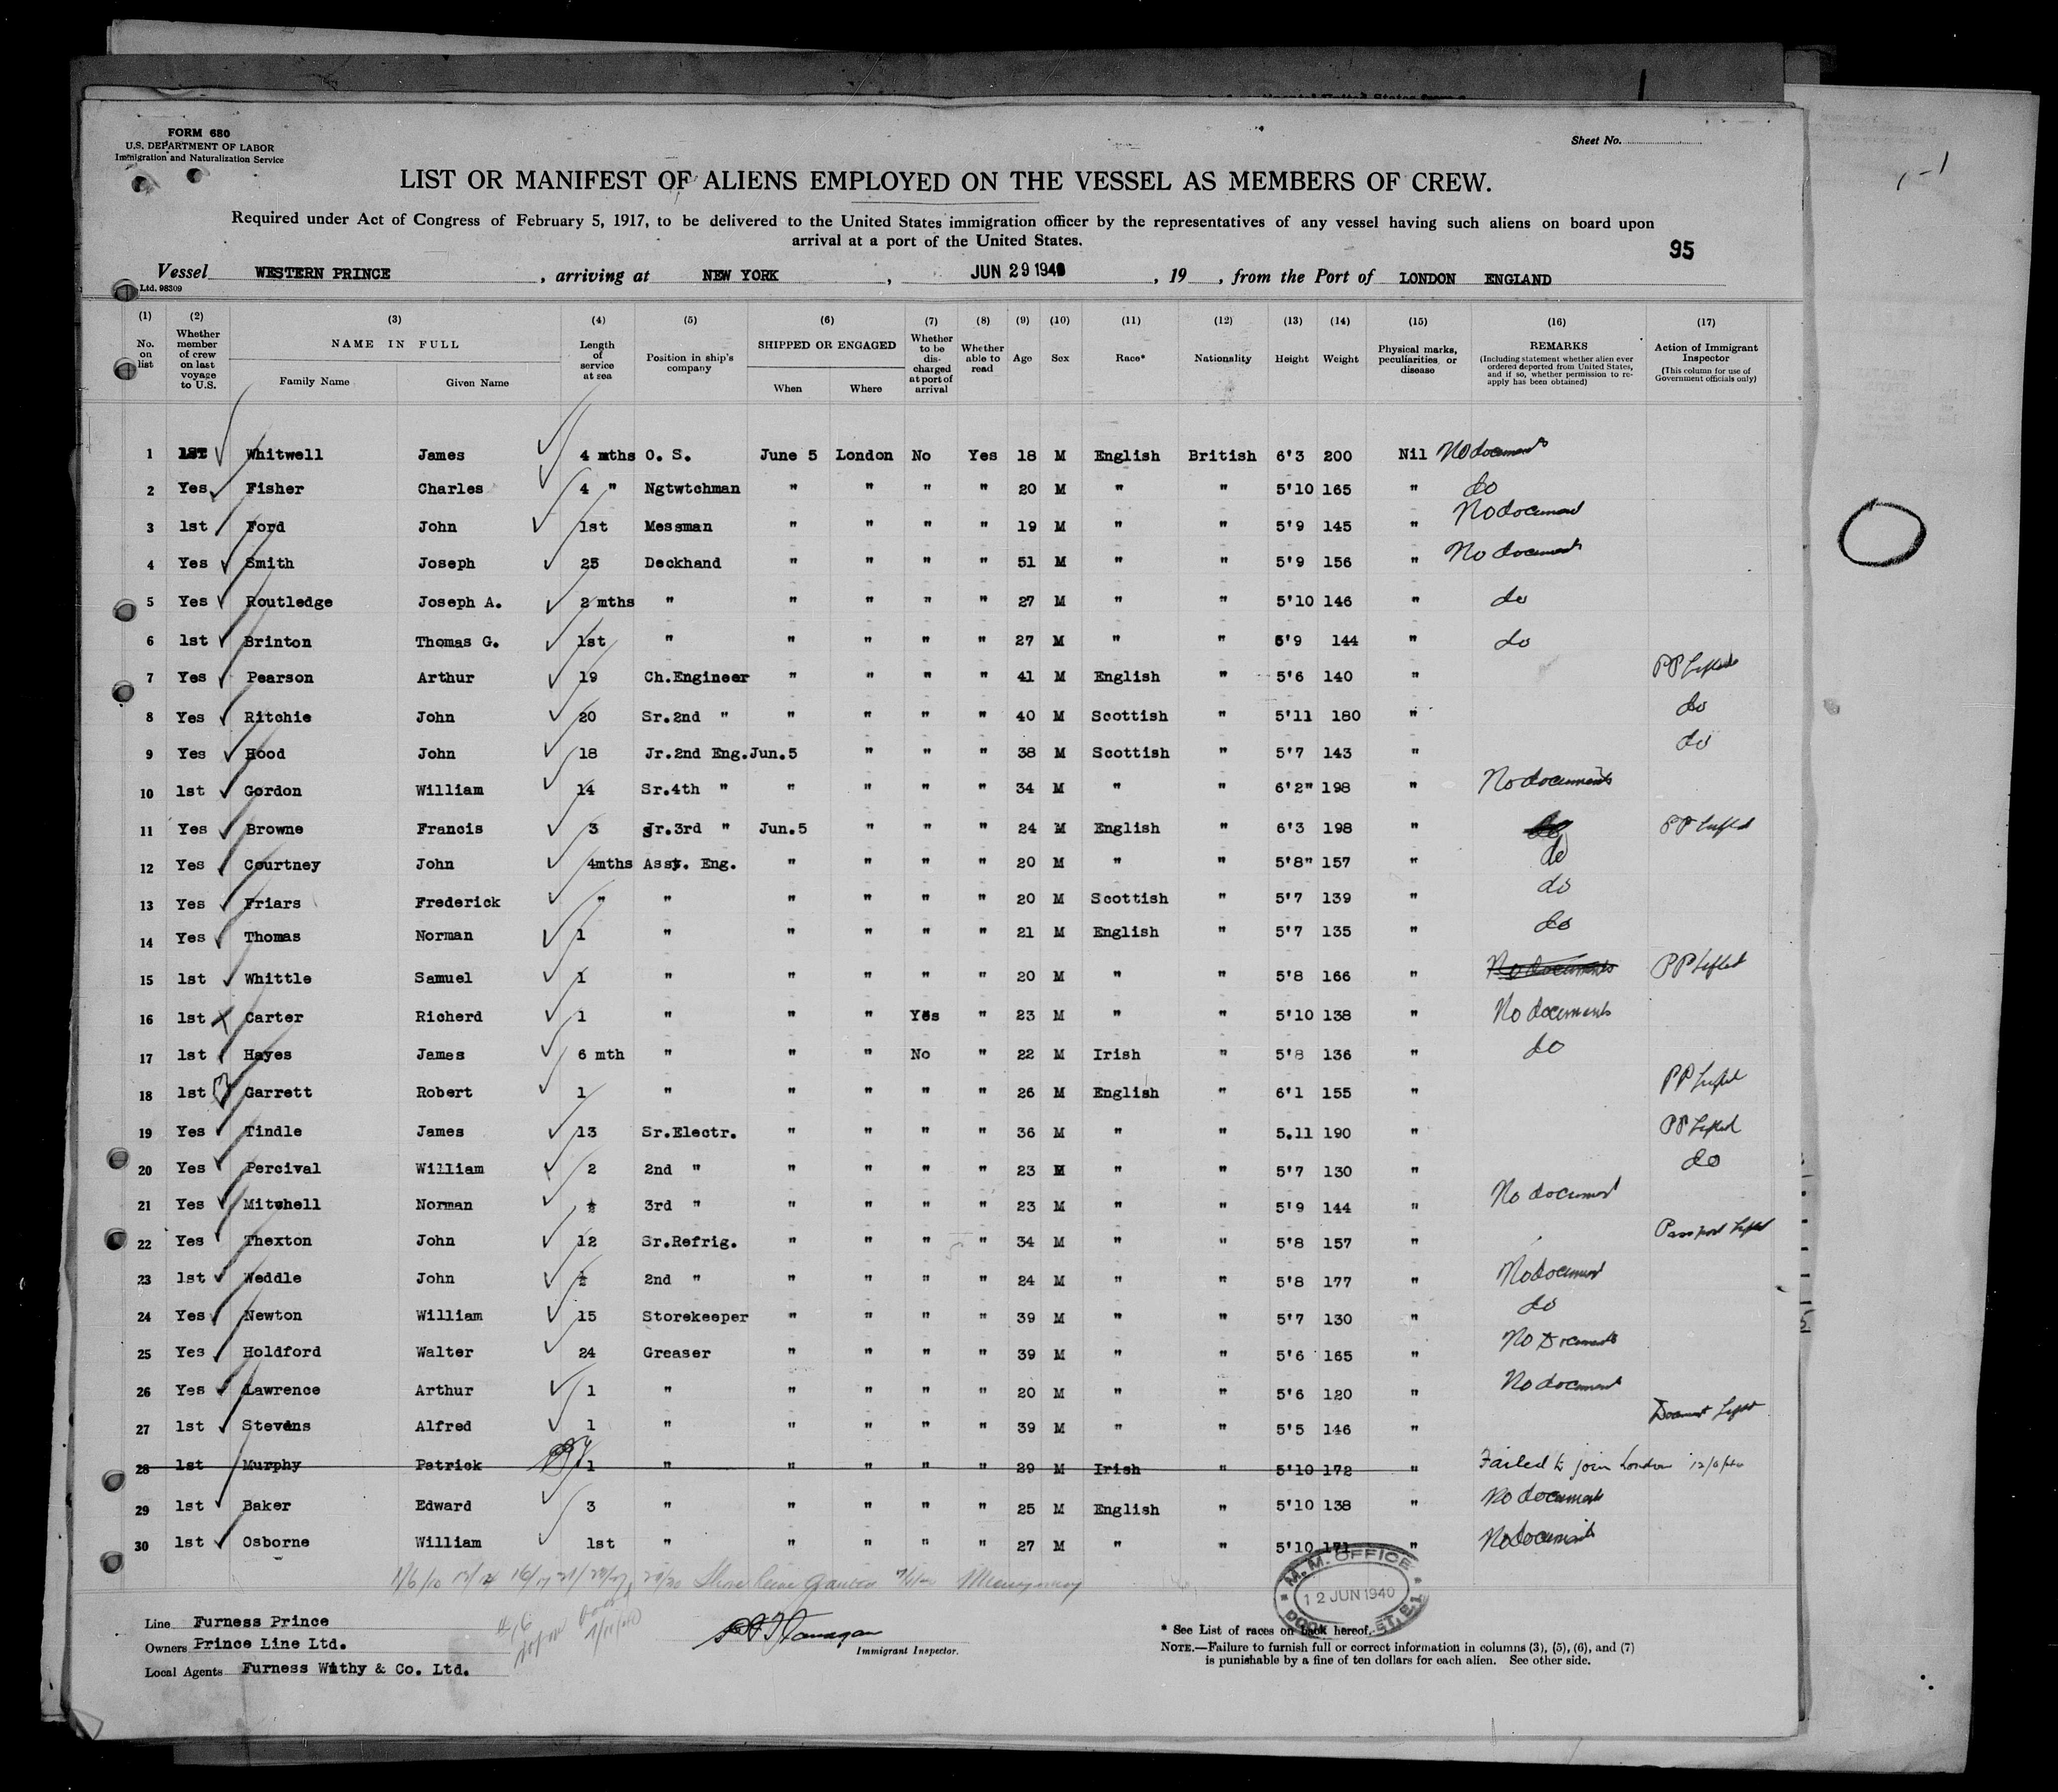 FORM 680
U.S. DEPARTMENT OF LABOR
Immigration and Naturalization Service
Sheet No.
LIST OR MANIFEST OF ALIENS EMPLOYED ON THE VESSEL AS MEMBERS OF CREW.
Required under Act of Congress of February 5, 1917, to be delivered to the United States immigration officer by the representatives of any vessel having such aliens on board upon
arrival at a port of the United States.
95
Vessel WESTERN PRINCE , arriving at NEW YORK , JUN 29 1940 , 19 , from the Port of LONDON ENGLAND
Ltd. 98309
(1) (2) (3) (4) (5) (6) (7) (8) (9) (10) (11) (12) (13) (14) (15) (16) (17)
No. on list Whether member of crew on last voyage to U.S. NAME IN FULL Family Name Given Name Length of service at sea Position in ship's company SHIPPED OR ENGAGED When Where Whether to be discharged at port of arrival Whether able to read Age Sex Race* Nationality Height Weight Physical marks, peculiarities, or disease REMARKS (Including statement whether alien ever ordered deported from United States, and if so, whether permission to reapply has been obtained) Action of Immigrant Inspector (This column for use of Government officials only)
1 1ST Whitwell James 4 mths O. S. June 5 London No Yes 18 M English British 6'3 200 Nil No documents
2 Yes Fisher Charles 4 " Ngtwtchman " " " " 20 M " " 5'10 165 " do
3 1st Ford John 1st Messman " " " " 19 M " " 5'9 145 " No document
4 Yes Smith Joseph 25 Deckhand " " " " 51 M " " 5'9 156 " No documents
5 Yes Routledge Joseph A. 2 mths " " " " " 27 M " " 5'10 146 " do
6 1st Brinton Thomas G. 1st " " " " " 27 M " " 5'9 144 " do
7 Yes Pearson Arthur 19 Ch.Engineer " " " " 41 M English " 5'6 140 " PP Lifted
8 Yes Ritchie John 20 Sr.2nd " " " " " 40 M Scottish " 5'11 180 " do
9 Yes Hood John 18 Jr.2nd Eng. Jun.5 " " " 38 M Scottish " 5'7 143 " do
10 1st Gordon William 14 Sr.4th " " " " " 34 M " " 6'2" 198 " No documents
11 Yes Browne Francis 3 Jr.3rd " Jun.5 " " " 24 M English " 6'3 198 " do PP Lifted
12 Yes Courtney John 4mths Asst. Eng. " " " " 20 M " " 5'8" 157 " do
13 Yes Friars Frederick " " " " " " 20 M Scottish " 5'7 139 " do
14 Yes Thomas Norman 1 " " " " " 21 M English " 5'7 135 " do
15 1st Whittle Samuel 1 " " " " " 20 M " " 5'8 166 " No documents PP Lifted
16 1st Carter Richerd 1 " " " Yes " 23 M " " 5'10 138 " No documents
17 1st Hayes James 6 mth " " " No " 22 M Irish " 5'8 136 " do
18 1st Garrett Robert 1 " " " " " 26 M English " 6'1 155 " PP Lifted
19 Yes Tindle James 13 Sr.Electr. " " " " 36 M " " 5.11 190 " PP Lifted
20 Yes Percival William 2 2nd " " " " " 23 M " " 5'7 130 " do
21 Yes Mitchell Norman 3rd " " " " " 23 M " " 5'9 144 " No document
22 Yes Thexton John 12 Sr.Refrig. " " " " 34 M " " 5'8 157 " Passport Lifted
23 1st Weddle John 2nd " " " " " 24 M " " 5'8 177 " No document
24 Yes Newton William 15 Storekeeper " " " " 39 M " " 5'7 130 " do
25 Yes Holdford Walter 24 Greaser " " " " 39 M " " 5'6 165 " No Documents
26 Yes Lawrence Arthur 1 " " " " " 20 M " " 5'6 120 " No document
27 1st Stevens Alfred 1 " " " " " 39 M " " 5'5 146 " Document Lifted
28 1st Murphy Patrick 1 " " " " " 29 M Irish " 5'10 172 " Failed to join London 12/6/40
29 1st Baker Edward 3 " " " " " 25 M English " 5'10 138 " No documents
30 1st Osborne William 1st " " " " " 27 M " " 5'10 171 " No documents
Line Furness Prince
Owners Prince Line Ltd.
Local Agents Furness Withy & Co. Ltd.
Immigrant Inspector.
M. M. OFFICE
12 JUN 1940
* See List of races on back hereof.
NOTE.—Failure to furnish full or correct information in columns (3), (5), (6), and (7)
is punishable by a fine of ten dollars for each alien. See other side.